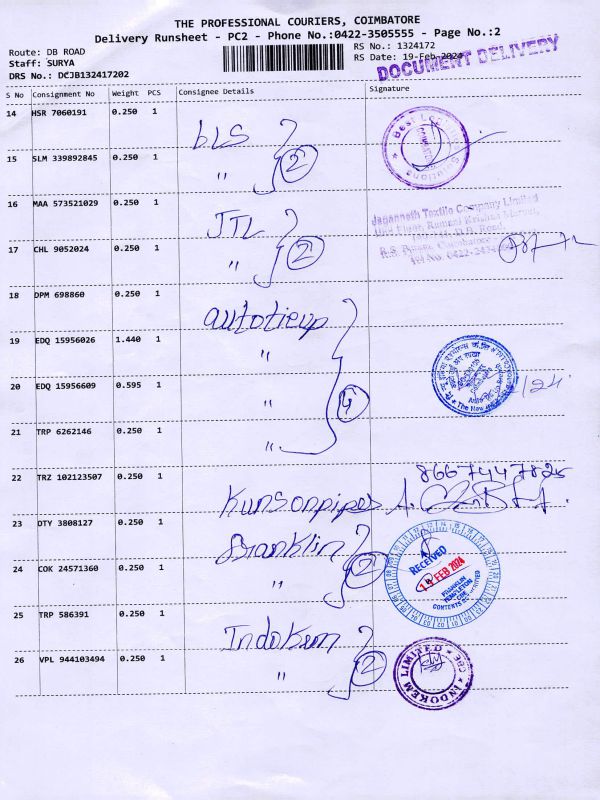 THE PROFESSIONAL COURIERS, COIMBATORE
Delivery Runsheet - PC2 - Phone No.:0422-3505555 - Page No.:2
Route: DB ROAD
Staff: SURYA
DRS No.: DCJB132417202
RS No.: 1324172
RS Date: 19-Feb-2024
DOCUMENT DELIVERY
S No Consignment No Weight PCS Consignee Details Signature
14 HSR 7060191 0.250 1 bLS
15 SLM 339892845 0.250 1 " 2
16 MAA 573521029 0.250 1 JTL
Jagannath Textile Company Limited
17 CHL 9052024 0.250 1 " 2
18 DPM 698860 0.250 1 autotieup
19 EDQ 15956026 1.440 1 "
20 EDQ 15956609 0.595 1 " 4
21 TRP 6262146 0.250 1 "
22 TRZ 102123507 0.250 1 Kunsonpipes
8667447825
23 DTY 3808127 0.250 1 Franklin
24 COK 24571360 0.250 1 " 2
RECEIVED
FEB 2024
FRANKLIN
TEMPLETON
CBE
CONTENTS NOT VERIFIED
25 TRP 586391 0.250 1 Indokem
26 VPL 944103494 0.250 1 " 2
INDOKEM LIMITED CBE